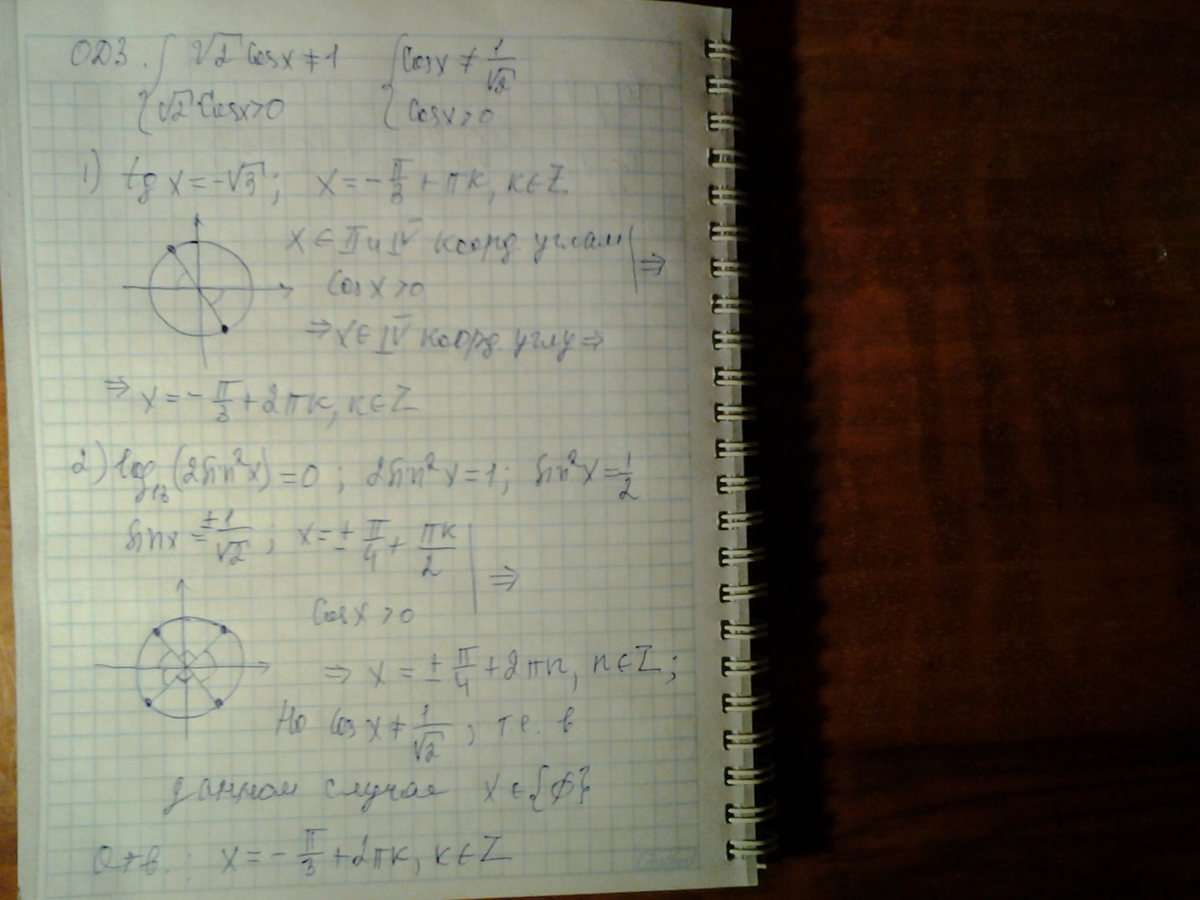 ОДЗ. { √2 cosx ≠ 1 { cosx ≠ 1/√2
√2 cosx > 0 cosx > 0
1) tg x = -√3; x = -π/3 + πk, k∈Z
x ∈ II и IV коорд. углам | ⇒
cosx > 0
⇒ x ∈ IV коорд. углу ⇒
⇒ x = -π/3 + 2πk, k∈Z
2) log₁₃(2sin²x) = 0; 2sin²x = 1; sin²x = 1/2
sinx = ±1/√2; x = ± π/4 + πk/2 | ⇒
cosx > 0
⇒ x = ± π/4 + 2πn, n∈Z;
Но cosx ≠ 1/√2; т.е. в
данном случае x ∈ {∅}
Отв.: x = -π/3 + 2πk, k∈Z